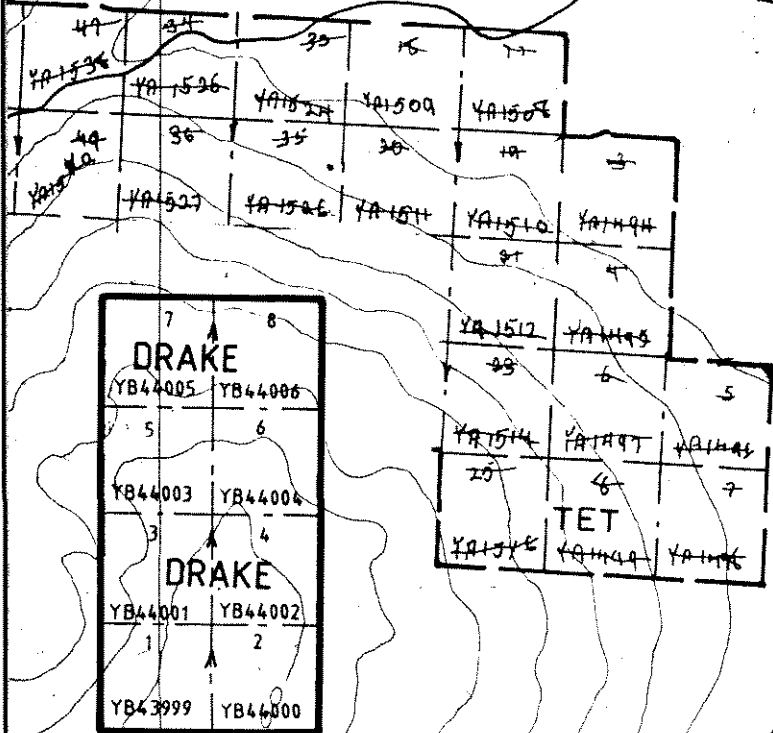 47 34 33 18 17
YA1538 YA1526 YA1524 YA1509 YA1508
49 36 35 20 19 3
YA1527 YA1526 YA1511 YA1510 YA1494
21 4
YA1512 YA1495
23 6 5
YA1514 YA1497
25 8 7
TET
YA1496
7 8
DRAKE
YB44005 YB44006
5 6
YB44003 YB44004
3 4
DRAKE
YB44001 YB44002
1 2
YB43999 YB44000